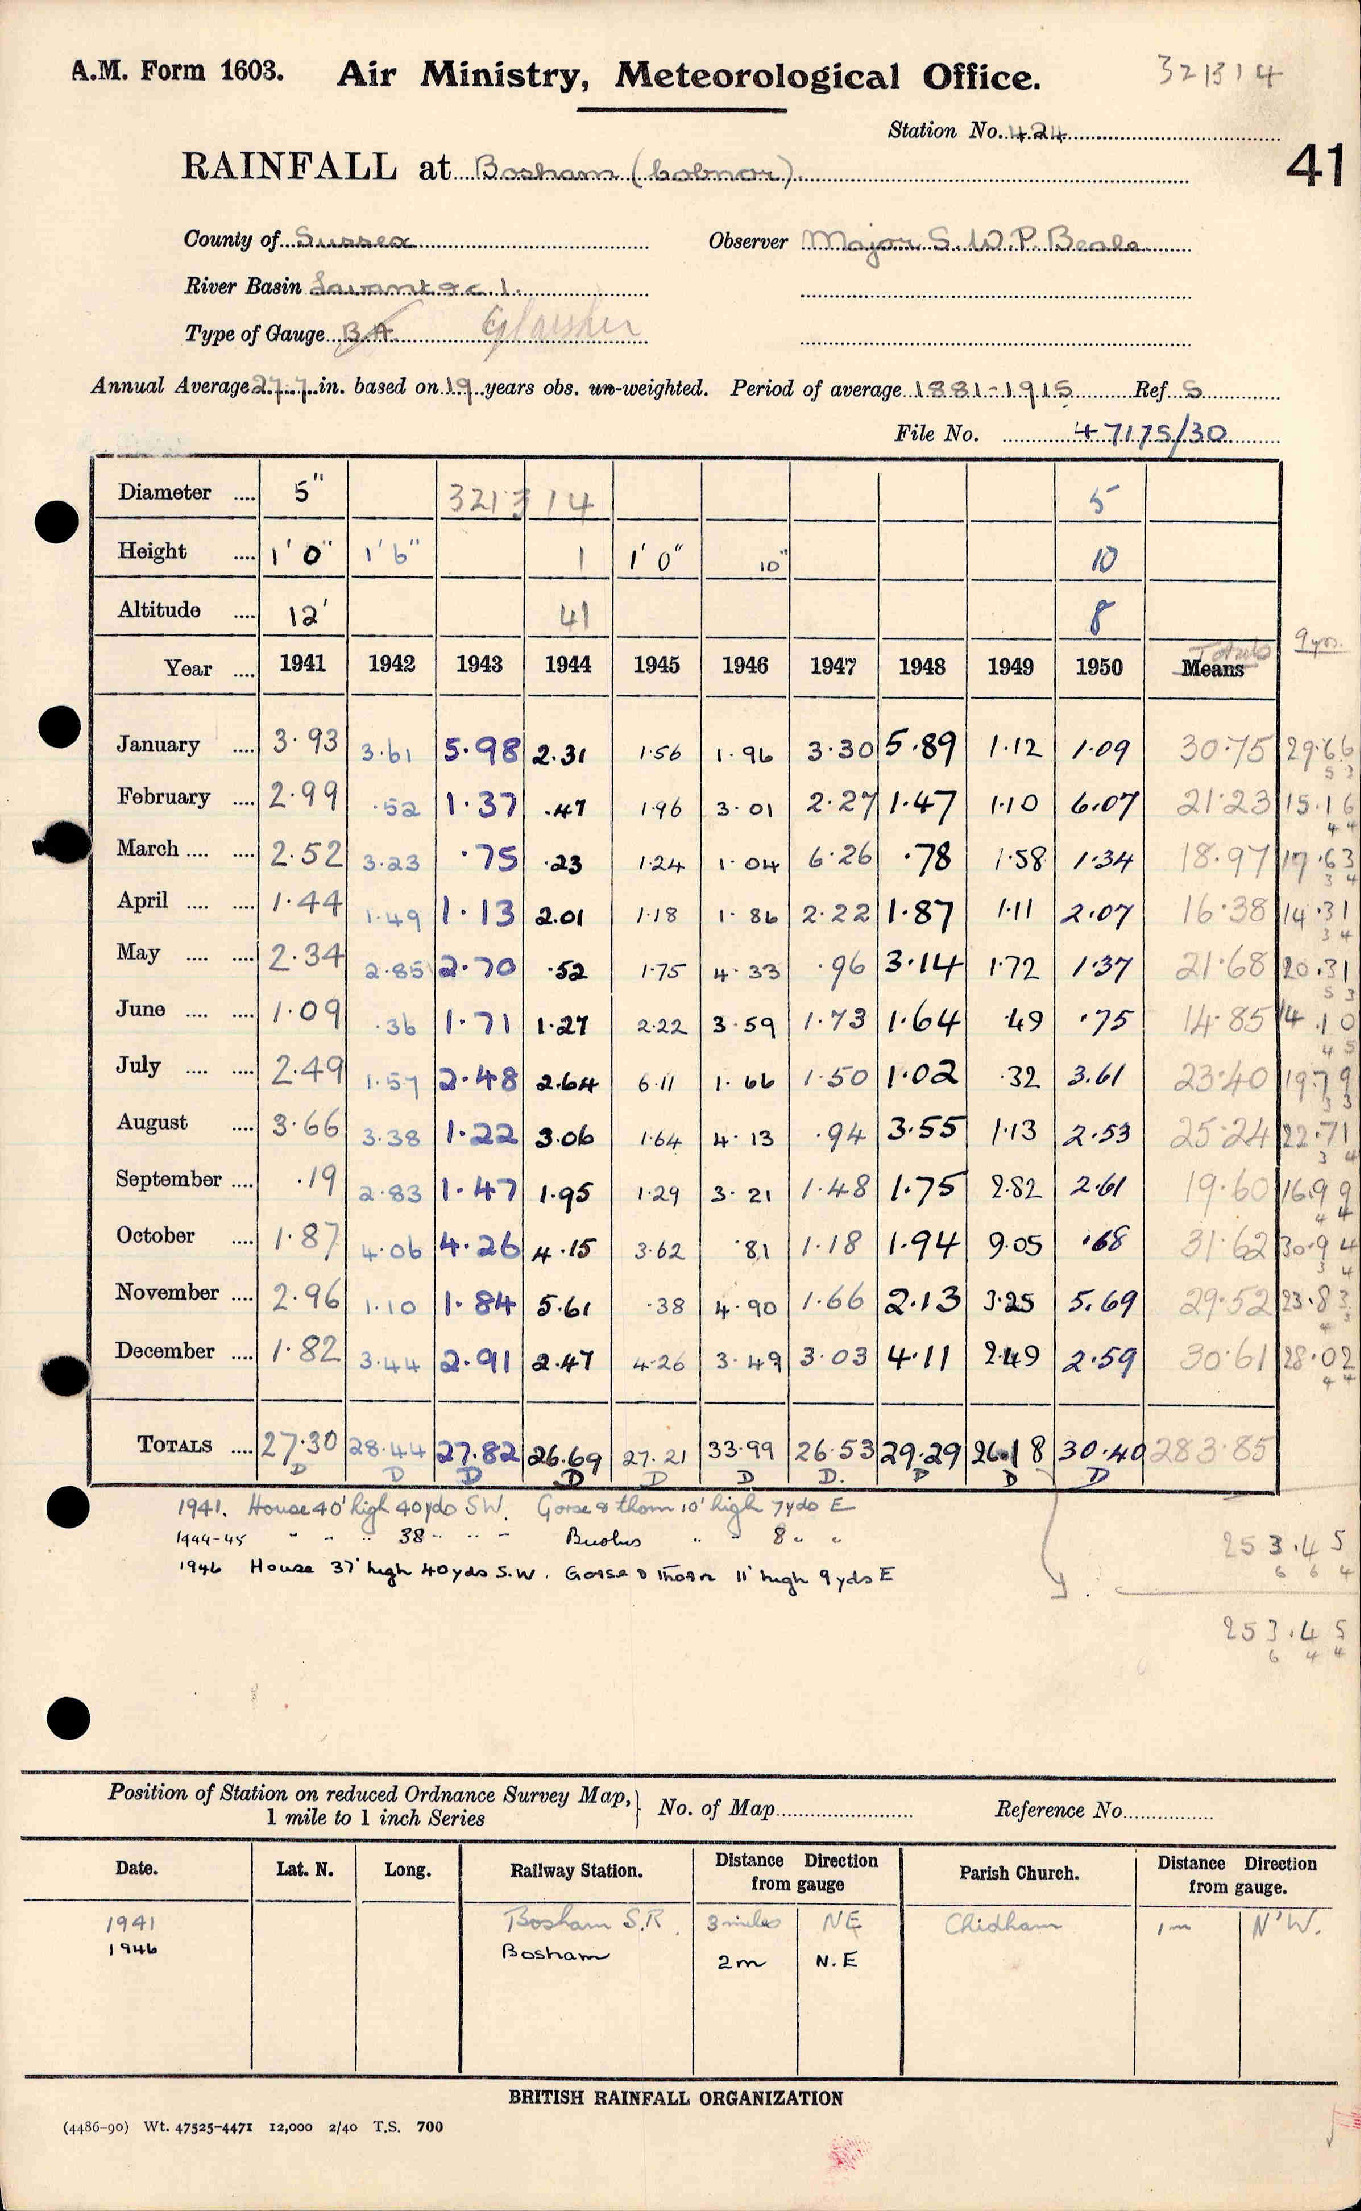 A.M. Form 1603. Air Ministry, Meteorological Office. 321314
Station No. 424
41
RAINFALL at Bosham (Cobnor)
County of Sussex Observer Major S.W.P. Beale
River Basin Lavant &c 1.
Type of Gauge B.A. Glaisher
Annual Average 27.7 in. based on 19 years obs. un-weighted. Period of average 1881-1915 Ref S
File No. 47175/30
Diameter .... 5" 321314 5
Height .... 1' 0" 1' 6" 1 1' 0" 10" 10
Altitude .... 12' 41 8
Year .... 1941 1942 1943 1944 1945 1946 1947 1948 1949 1950 Means Totals 9 yrs.
January .... 3.93 3.61 5.98 2.31 1.56 1.96 3.30 5.89 1.12 1.09 30.75 29.66
5 3
February .... 2.99 .52 1.37 .47 1.96 3.01 2.27 1.47 1.10 6.07 21.23 15.16
4 4
March .... .... 2.52 3.23 .75 .23 1.24 1.04 6.26 .78 1.58 1.34 18.97 17.63
3 4
April .... .... 1.44 1.49 1.13 2.01 1.18 1.86 2.22 1.87 1.11 2.07 16.38 14.31
3 4
May .... .... 2.34 2.85 2.70 .52 1.75 4.33 .96 3.14 1.72 1.37 21.68 20.31
5 3
June .... .... 1.09 .36 1.71 1.27 2.22 3.59 1.73 1.64 .49 .75 14.85 14.10
4 5
July .... .... 2.49 1.57 2.48 2.64 6.11 1.66 1.50 1.02 .32 3.61 23.40 19.79
3 3
August .... 3.66 3.38 1.22 3.06 1.64 4.13 .94 3.55 1.13 2.53 25.24 22.71
3 4
September .... .19 2.83 1.47 1.95 1.29 3.21 1.48 1.75 2.82 2.61 19.60 16.99
4 4
October .... 1.87 4.06 4.26 4.15 3.62 .81 1.18 1.94 9.05 .68 31.62 30.94
3 4
November .... 2.96 1.10 1.84 5.61 .38 4.90 1.66 2.13 3.25 5.69 29.52 23.83
December .... 1.82 3.44 2.91 2.47 4.26 3.49 3.03 4.11 2.49 2.59 30.61 28.02
4 4
TOTALS .... 27.30 28.44 27.82 26.69 27.21 33.99 26.53 29.29 26.18 30.40 283.85
D D D D D D D. D D D
1941. House 40' high 40yds SW. Gorse & thorn 10' high 7yds E
1944-45 " " " 38 " " " Bushes " " 8 " "
1946 House 37' high 40yds S.W. Gorse & Thorn 11' high 9yds E
253.45
6 6 4
253.45
6 4 4
Position of Station on reduced Ordnance Survey Map, 1 mile to 1 inch Series No. of Map Reference No.
Date. Lat. N. Long. Railway Station. Distance Direction from gauge Parish Church. Distance Direction from gauge.
1941 Bosham S.R. 3 miles NE Chidham 1m N'W.
1946 Bosham 2m N.E
BRITISH RAINFALL ORGANIZATION
(4486-90) Wt. 47525-4471 12,000 2/40 T.S. 700